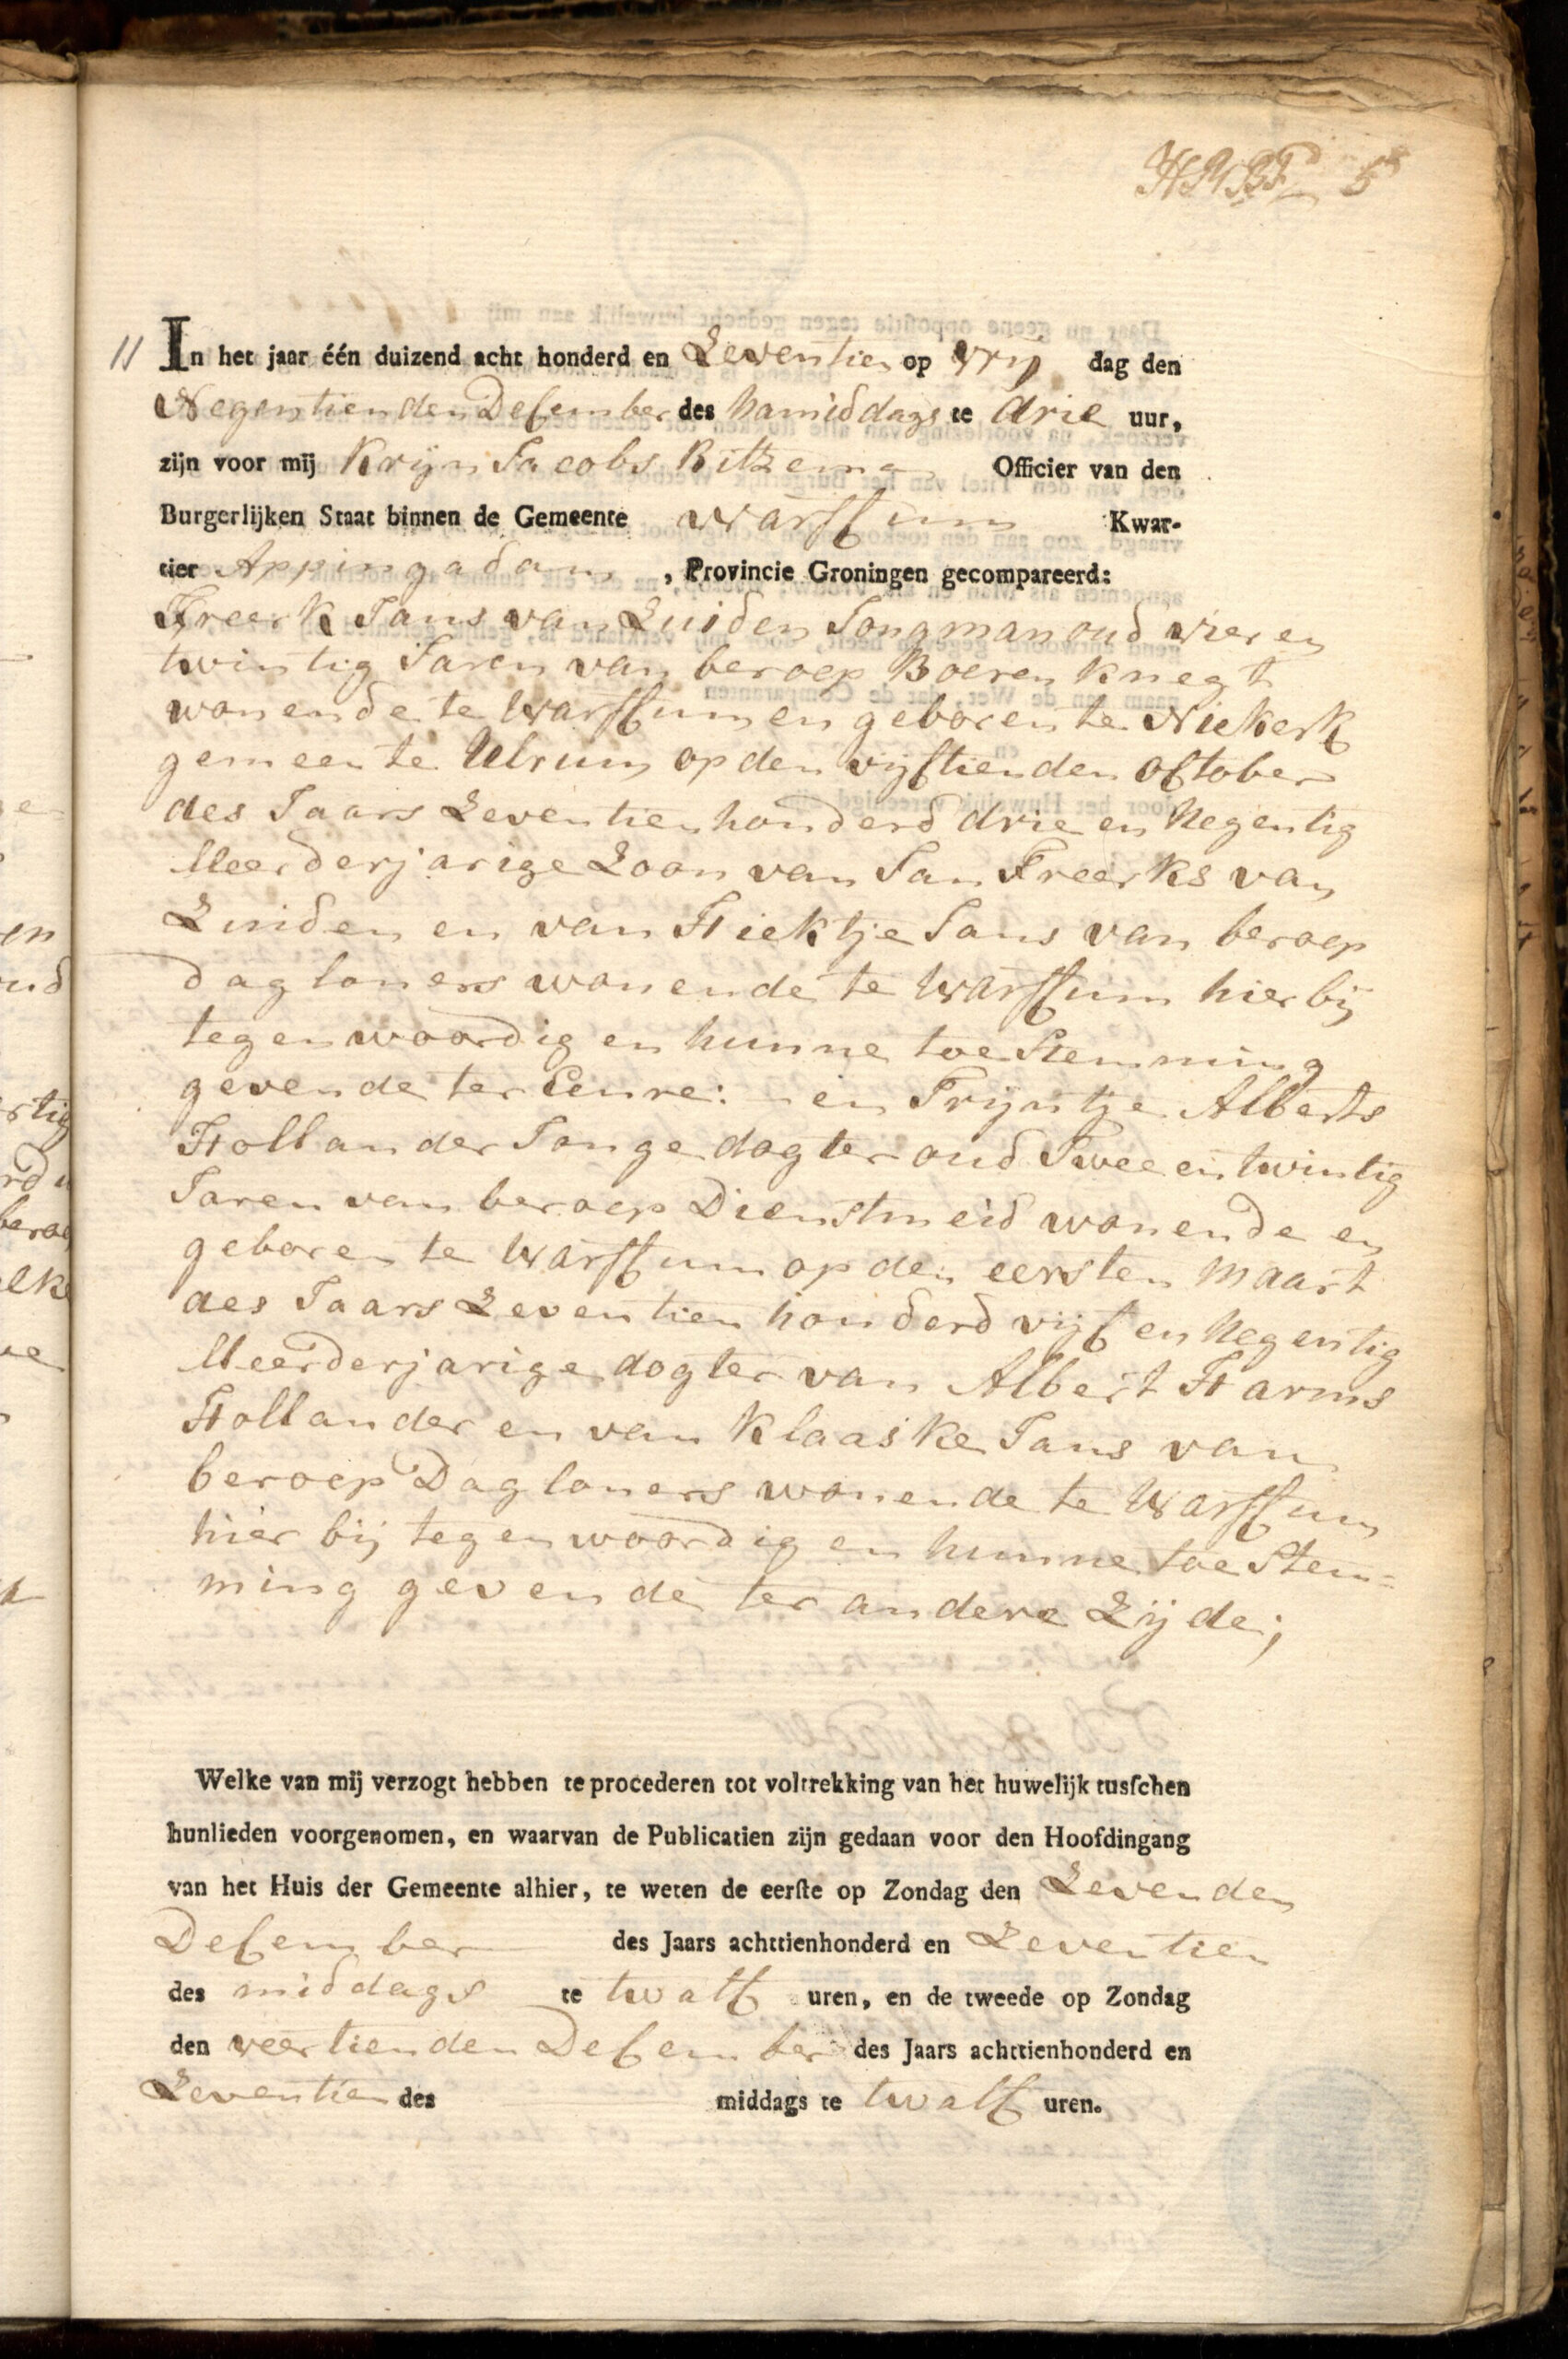 5
11 In het jaar één duizend acht honderd en Zeventien op vrij dag den
Negentienden December des Namiddags te drie uur,
zijn voor mij Krijn Jacobs Ritzema Officier van den
Burgerlijken Staat binnen de Gemeente Warffum Kwar-
tier Appingadam, Provincie Groningen gecompareerd:
Freerk Jans van Zuiden Jongman oud vier en
twintig Jaren van beroep Boeren knegt
wonende te Warffum en geboren te Niekerk
gemeente Ulrum op den vijftienden October
des Jaars Zeventienhonderd drie en Negentig
Meerderjarige Zoon van Jan Freerks van
Zuiden en van Hiektje Jans van beroep
dagloners wonende te Warffum hier bij
tegenwoordig en hunne toestemming
gevende ter Eenre: en Trijntje Alberts
Hollander Jonge dogter oud Twee en twintig
Jaren van beroep Dienstmeid wonende en
geboren te Warffum op den eersten Maart
des Jaars Zeventien honderd vijf en Negentig
Meerderjarige dogter van Albert Harms
Hollander en van Klaaske Jans van
beroep Dagloners wonende te Warffum
hier bij tegenwoordig en hunne toe Stem=
ming gevende ter andere Zijde;
Welke van mij verzogt hebben te procederen tot voltrekking van het huwelijk tusschen
hunlieden voorgenomen, en waarvan de Publicatien zijn gedaan voor den Hoofdingang
van het Huis der Gemeente alhier, te weten de eerste op Zondag den Zevenden
December des Jaars achttienhonderd en Zeventien
des middags te twalf uren, en de tweede op Zondag
den veertienden December des Jaars achttienhonderd en
Zeventien des middags te twalf uren.